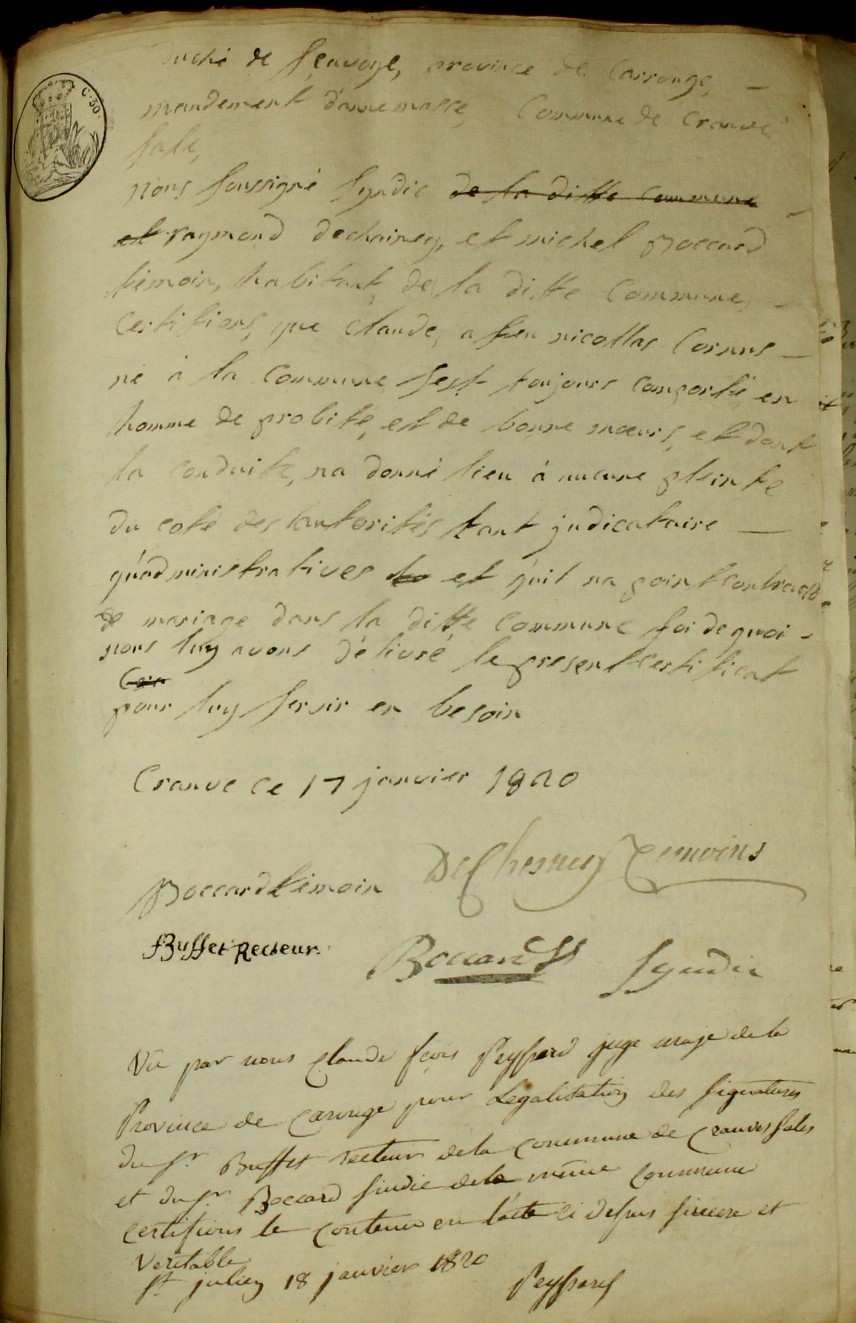 C. 50.
Duché de Sçavoye, province de Carrouge,
mandement d'annemasse, Commune de Cranve
Sale,
Nous soussigné Syndic de la ditte commune
et raymond dechainey, et michel Boccard
témoin, habitant de la ditte Commune,
Certifions, que Claude, a feu nicollas Cornus
né à la Commune sest toujours comporté en
homme de probité, et de bonne mœurs, et dont
la conduite, na donné lieu à aucune plainte
du coté des autorités tant judicataire
qúadministratives et quil na point contracté
de mariage dans la ditte Commune foi de quoi
nous luy avons délivré le present Certificat
pour luy servir en besoin
Cranve ce 17 janvier 1820
DeChesney Temoins
Boccard témoin
Buffet Recteur.
Boccard Syndic
Vu par nous Claude fçois Peyssard juge maje de la
Province de Carouge pour Legalisation des signatures
du Sr Buffet recteur de la commune de Cranves sales
et du Sr Boccard sindic dela même commune
certifions le contenu en l'acte ci dessus sincere et
veritable
St julien 18 janvier 1820
Peyssard